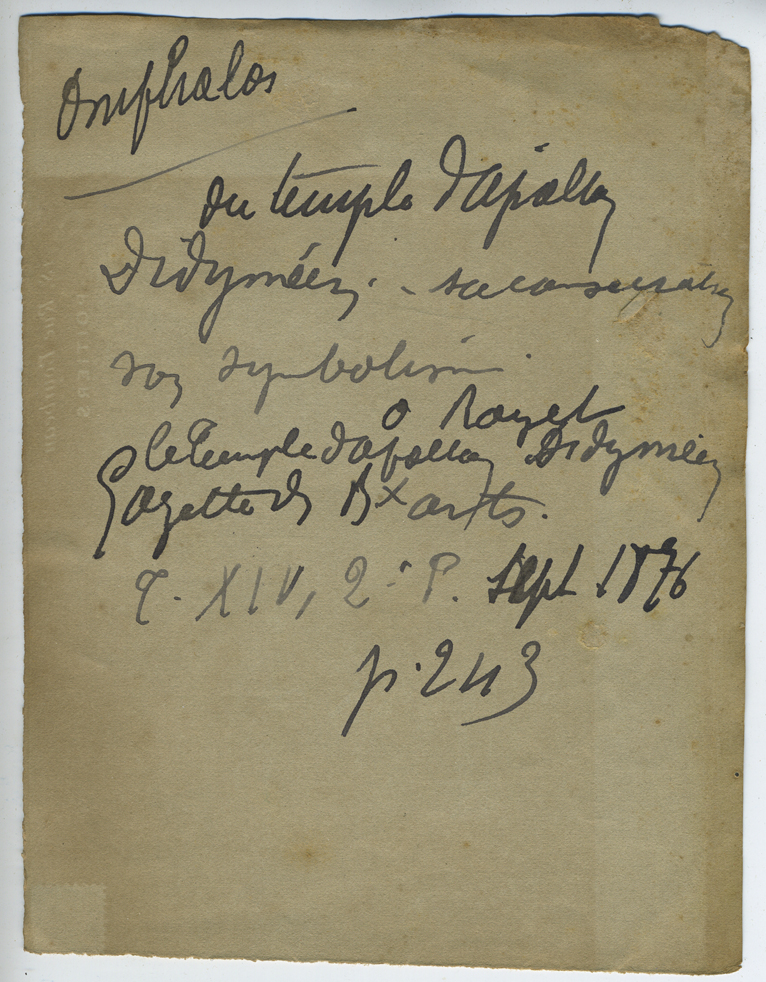 Omphalos
du temple d'Apollon
Didyméen. - sa consecration
son symbolisme.
O Rayet
le Temple d'Apollon Didyméen
Gazette des Bx arts.
T. XIV, 2e P. sept 1876
p. 243